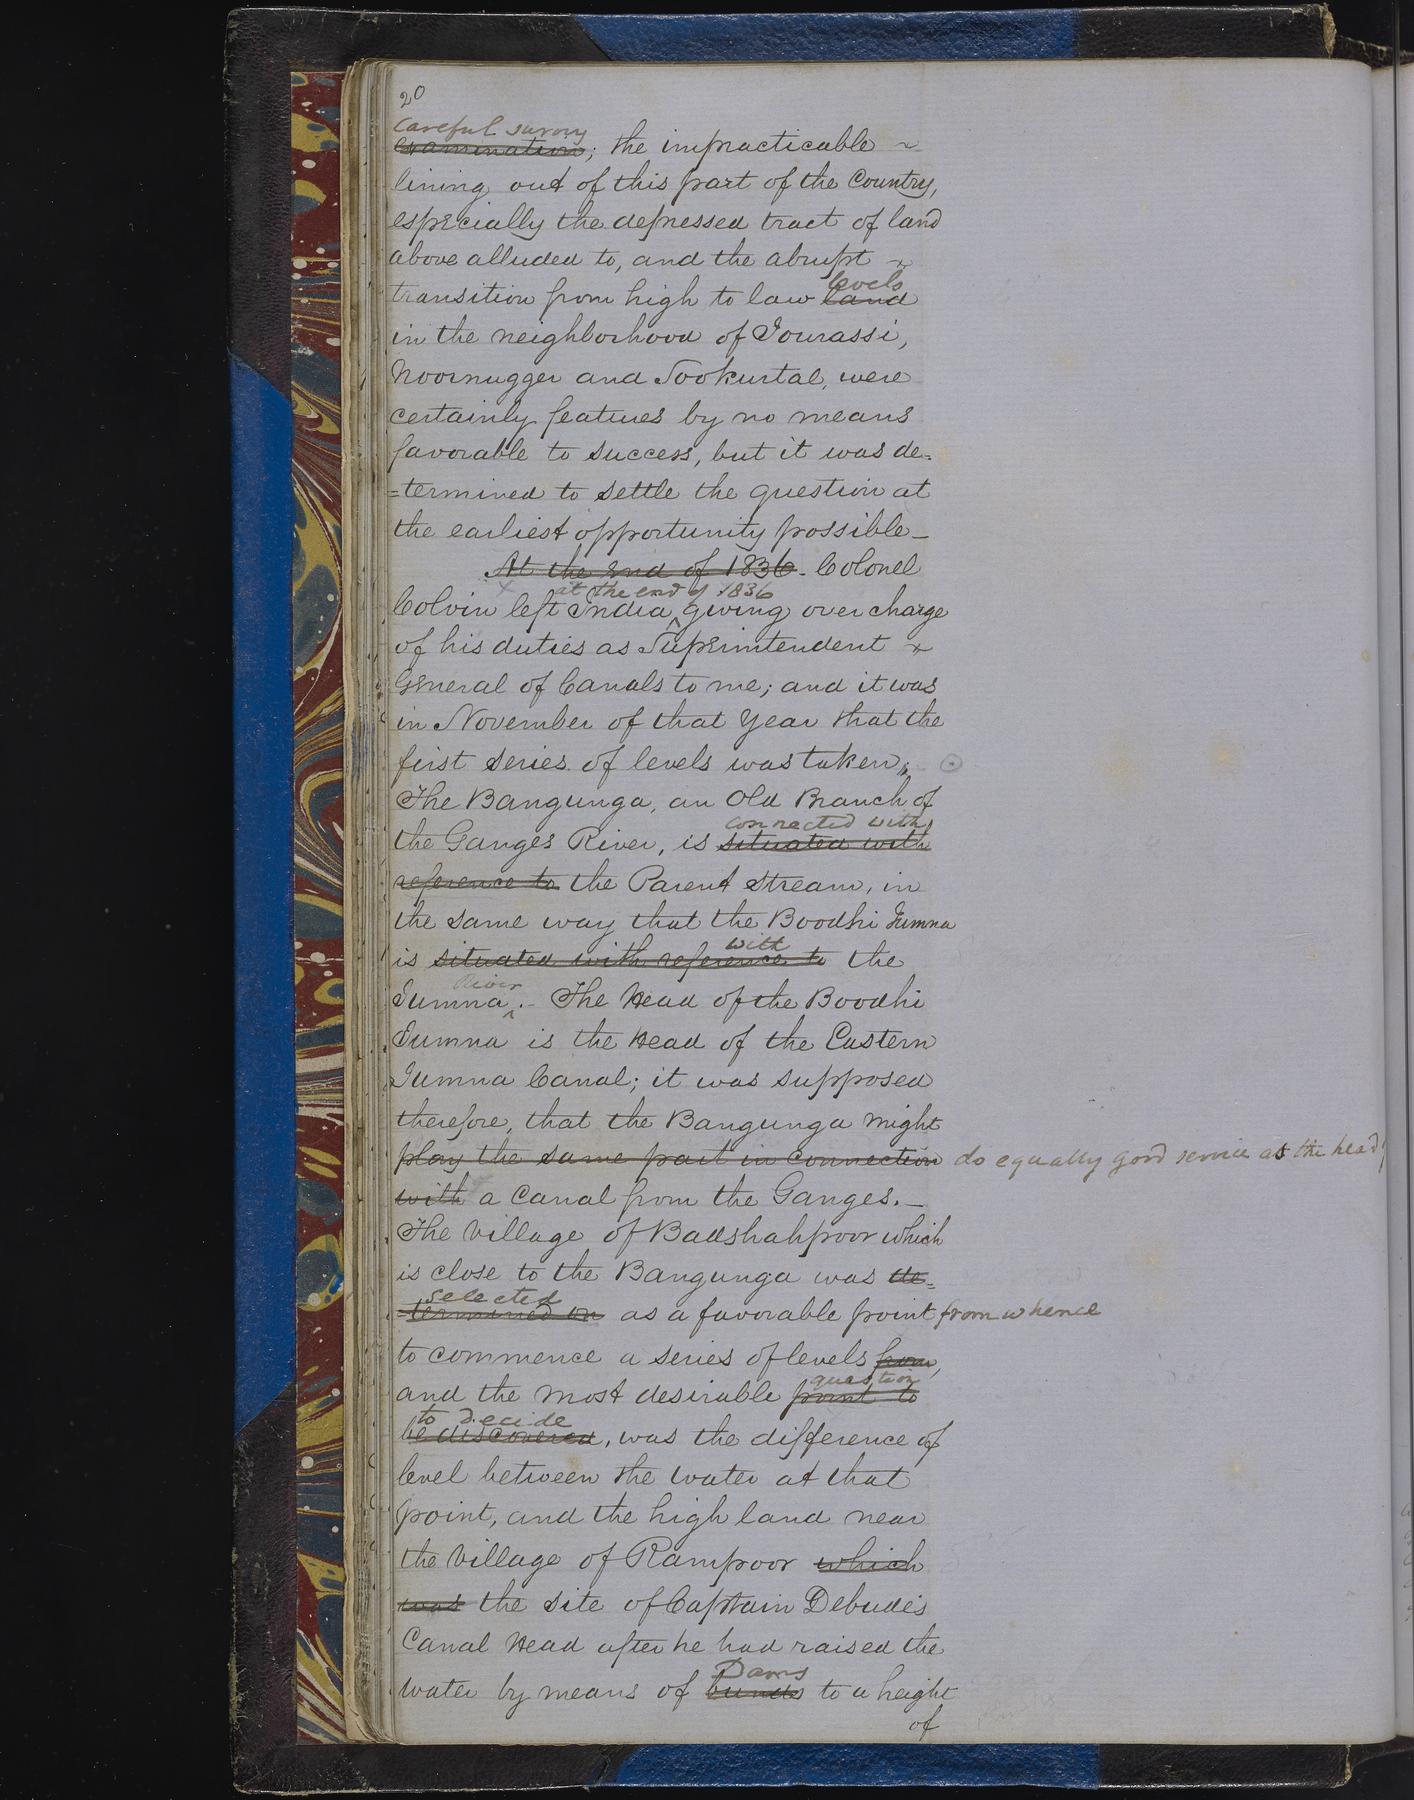 20
careful survey
examination; the impracticable ~
lining out of this part of the Country,
especially the depressed tract of land
above alluded to, and the abrupt ~
levels
transition from high to law land
in the neighborhood of Jourassi,
Noornugger and Sookurtal, were
certainly features by no means
favorable to success, but it was de=
=termined to settle the question at
the earliest opportunity possible_
At the end of 1836. Colonel
at the end of 1836
Colvin left India, giving over charge
of his duties as Superintendent ~
General of Canals to me; and it was
in November of that Year that the
first series of levels was taken;
The Bangunga, an Old Branch of
connected with
the Ganges River, is situated with
reference to the Parent Stream, in
the same way that the Boodhi Jumna
with
is situated with reference to the
River
Jumna ^.- The Head of the Boodhi
Jumna is the Head of the Eastern
Jumna Canal; it was supposed
therefore, that the Bangunga might
play the same part in connection do equally good service at the head
with a Canal from the Ganges._
The Village of Badshahpoor which
is close to the Bangunga was de=
selected
=termined on as a favorable point from whence
to commence a series of levels from,
question
and the most desirable point to
to decide
be discovered, was the difference of
level between the water at that
point, and the high land near
the Village of Rampoor which
was the site of Captain Debude's
Canal Head after he had raised the
Dams
water by means of bunds to a height
of